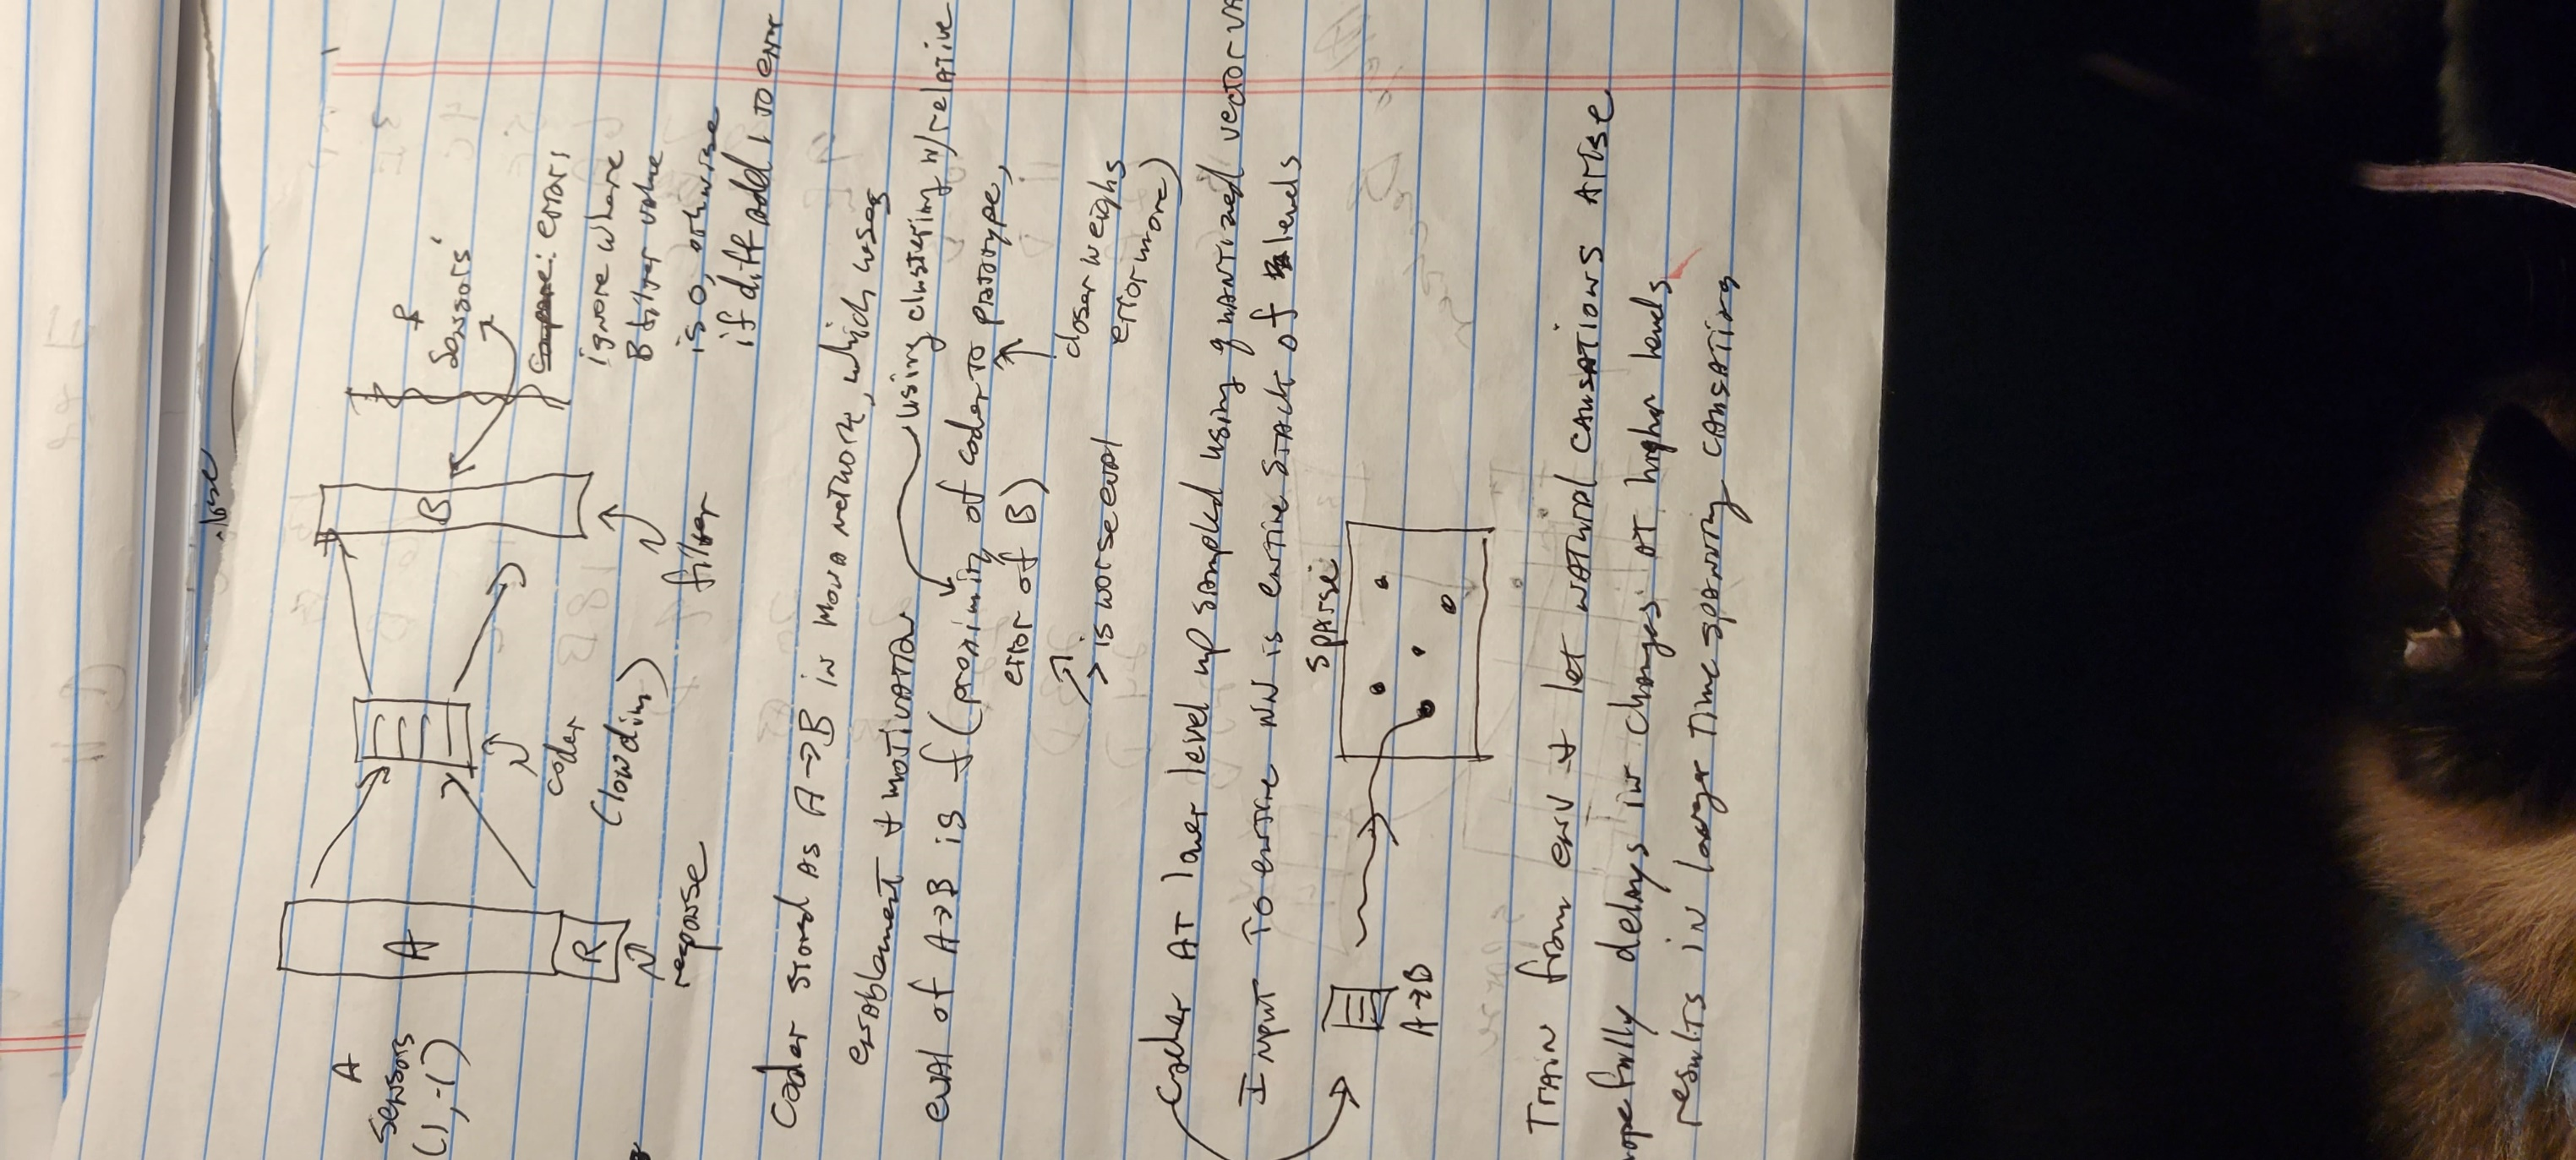 A
Sensors
(1, -1)
A
R
response
coder
(low dim)
B
filter
Sensors'
errors
ignore where
B filter value
is 0, otherwise
if diff add 1 to error
Coder stored as A→B in Mona network, which uses
enablement + motivation
using clustering w/relative
eval of A→B is f(proximity of coder to prototype,
error of B)
closer weighs
error more)
> is worse eval
Coder at lower level up sampled using quantized vector
Input to entire NN is entire stack of levels
sparse
A→B
Train from env + let natural causations arise
hopefully delays in changes at higher levels
results in longer time spanning causations